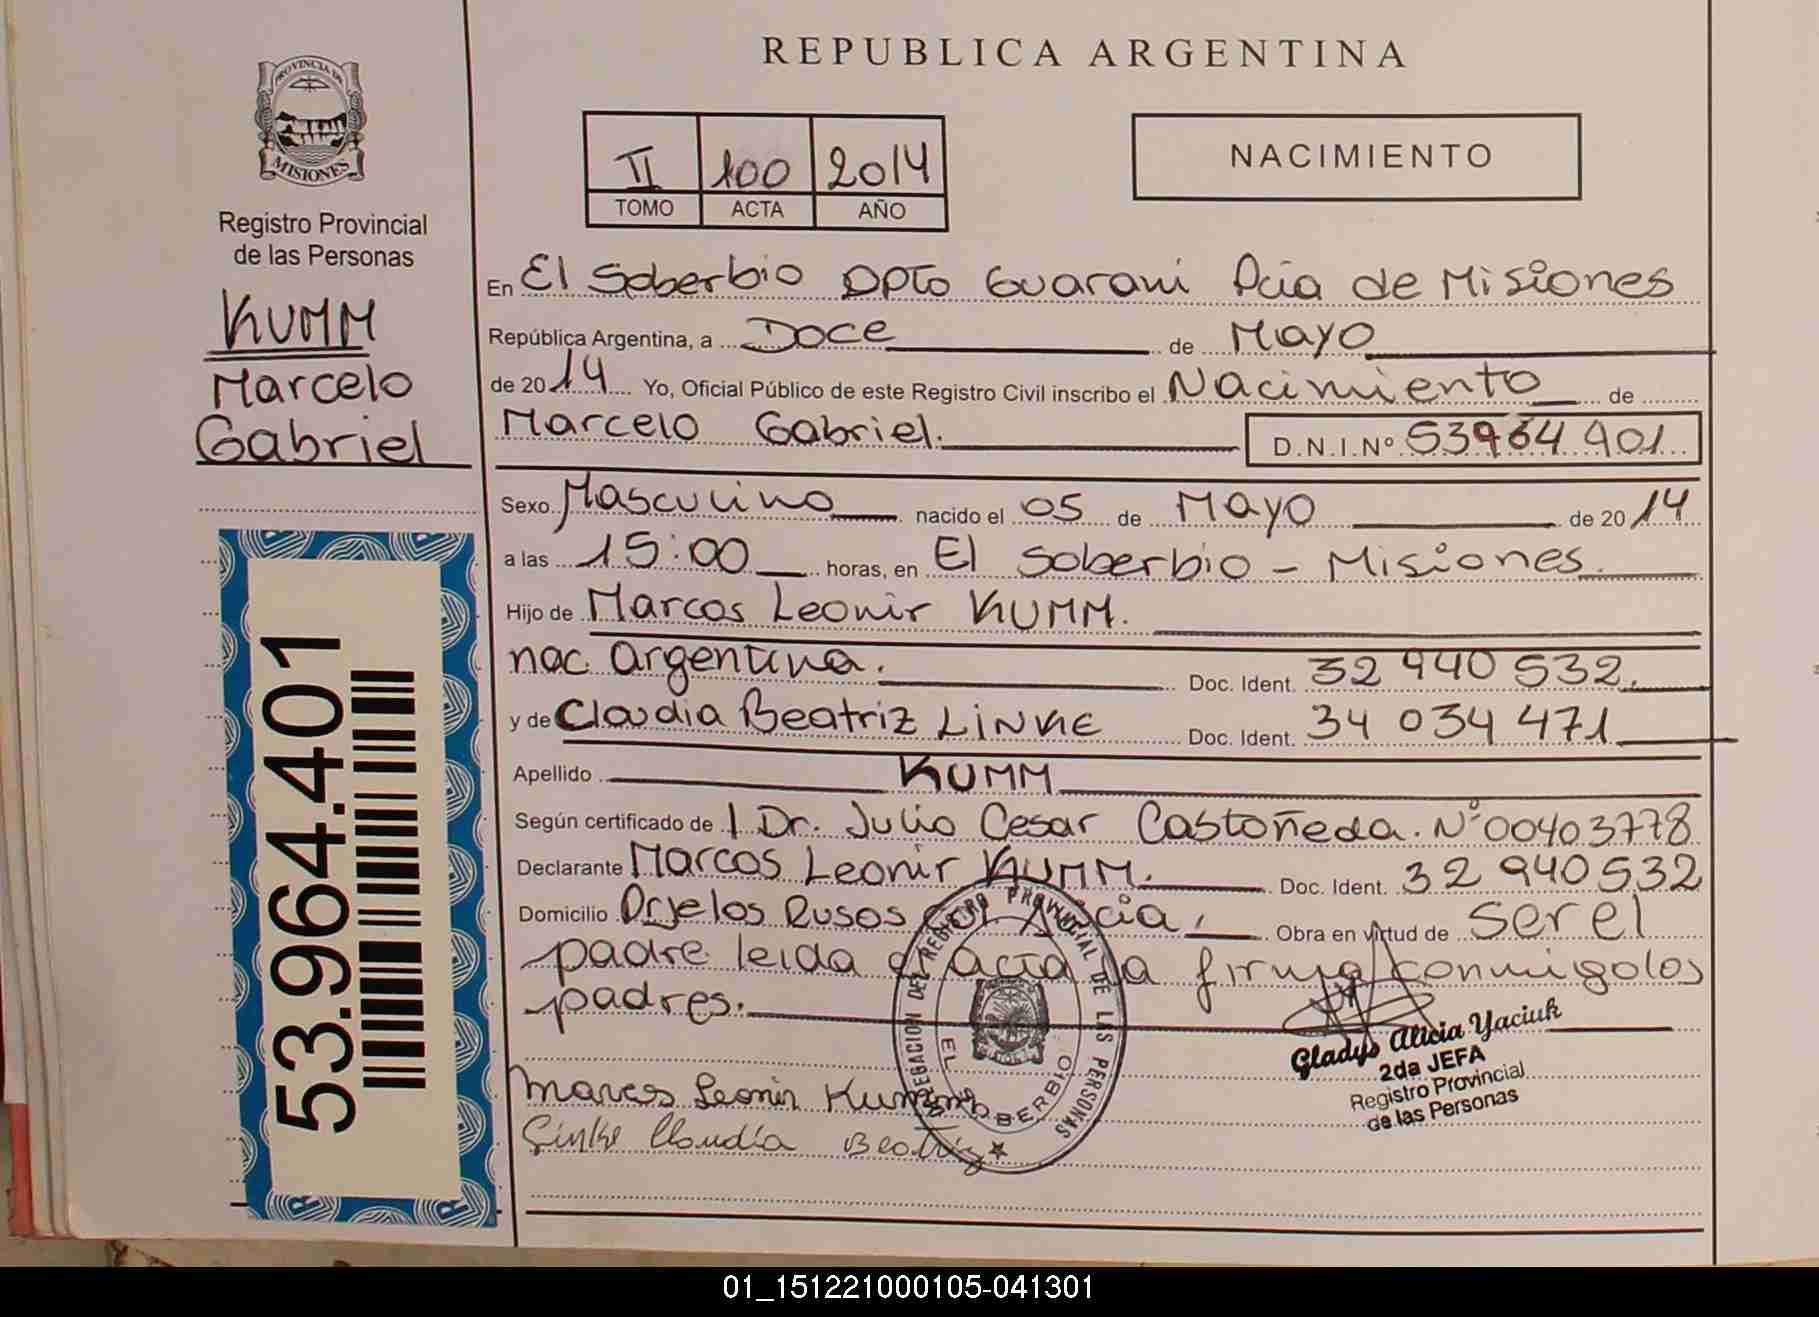 REPUBLICA ARGENTINA
PROVINCIA DE
MISIONES
Registro Provincial
de las Personas
KUMM
Marcelo
Gabriel
53.964.401
II 100 2014
TOMO ACTA AÑO
NACIMIENTO
En El Soberbio Dpto Guarani Pcia de Misiones
República Argentina, a Doce de Mayo
de 2014 Yo, Oficial Público de este Registro Civil inscribo el Nacimiento de
Marcelo Gabriel. D.N.I.Nº 53964401
Sexo Masculino nacido el 05 de Mayo de 2014
a las 15:00 horas, en El Soberbio - Misiones.
Hijo de Marcos Leonir KUMM.
nac. argentina. Doc. Ident. 32 940 532.
y de Claudia Beatriz LINKE Doc. Ident. 34 034 471
Apellido KUMM
Según certificado de 1 Dr. Julio Cesar Castañeda. Nº 00403778
Declarante Marcos Leonir KUMM. Doc. Ident. 32 940 532
Domicilio Rusos Obra en virtud de ser el
padre leida acta la firma conmigo los
padres.
DELEGACION DEL REGISTRO PROVINCIAL DE LAS PERSONAS
EL SOBERBIO
Gladys Alicia Yaciuk
2da JEFA
Registro Provincial
de las Personas
Marcos Leonir Kumm
Linke Claudia Beatriz
01_151221000105-041301